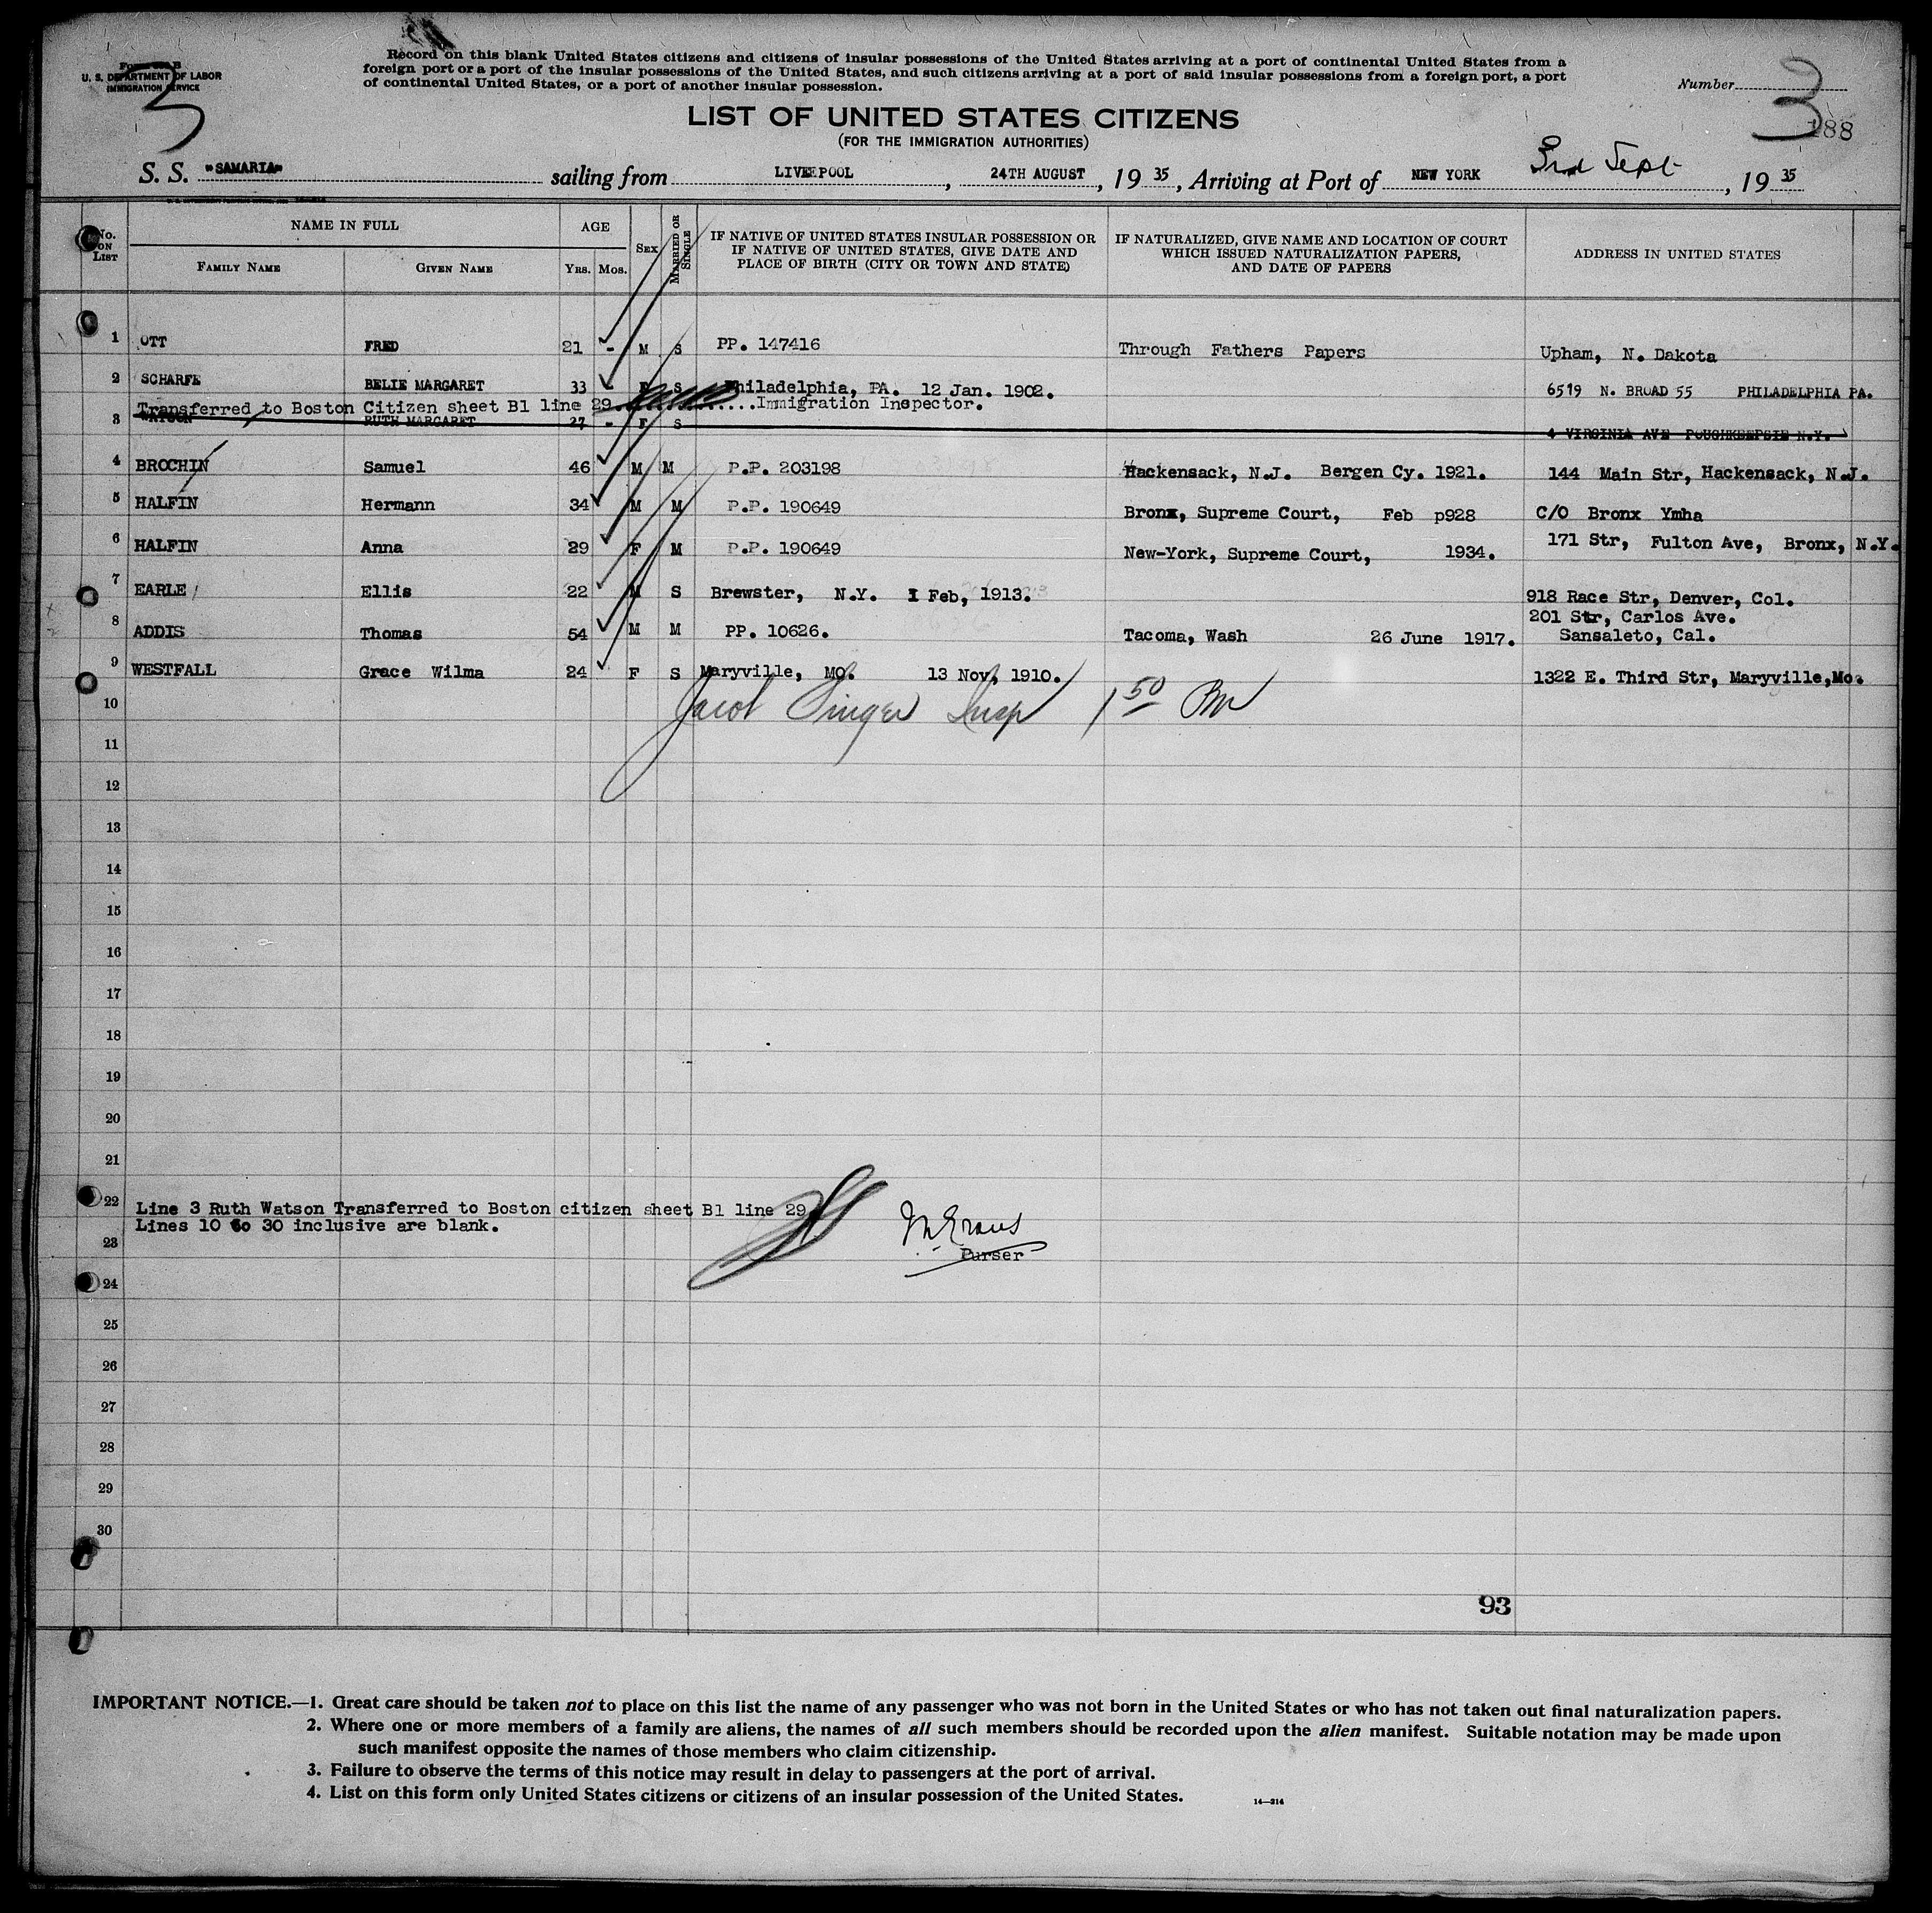 Form 630 B
U. S. DEPARTMENT OF LABOR
IMMIGRATION SERVICE
3
Record on this blank United States citizens and citizens of insular possessions of the United States arriving at a port of continental United States from a
foreign port or a port of the insular possessions of the United States, and such citizens arriving at a port of said insular possessions from a foreign port, a port
of continental United States, or a port of another insular possession.
Number 3
188
LIST OF UNITED STATES CITIZENS
(FOR THE IMMIGRATION AUTHORITIES)
S. S. "SAMARIA" sailing from LIVERPOOL, 24TH AUGUST, 19 35, Arriving at Port of NEW YORK 3rd Sept, 19 35
No. on List
NAME IN FULL
Family Name Given Name
AGE
Yrs. Mos.
Sex
Married or Single
IF NATIVE OF UNITED STATES INSULAR POSSESSION OR
IF NATIVE OF UNITED STATES, GIVE DATE AND
PLACE OF BIRTH (CITY OR TOWN AND STATE)
IF NATURALIZED, GIVE NAME AND LOCATION OF COURT
WHICH ISSUED NATURALIZATION PAPERS,
AND DATE OF PAPERS
ADDRESS IN UNITED STATES
1 OTT FRED 21 - M S PP. 147416 Through Fathers Papers Upham, N. Dakota
2 SCHARFE BELIE MARGARET 33 - F S Philadelphia, PA. 12 Jan. 1902. 6519 N. BROAD 55 PHILADELPHIA PA.
Transferred to Boston Citizen sheet B1 line 29...............Immigration Inspector.
3 WATSON RUTH MARGARET 27 - F S 4 VIRGINIA AVE POUGHKEEPSIE N.Y.
4 BROCHIN Samuel 46 M M P.P. 203198 Hackensack, N.J. Bergen Cy. 1921. 144 Main Str, Hackensack, N.J.
5 HALFIN Hermann 34 M M P.P. 190649 Bronx, Supreme Court, Feb p928 C/O Bronx Ymha
6 HALFIN Anna 29 F M P.P. 190649 New-York, Supreme Court, 1934. 171 Str, Fulton Ave, Bronx, N.Y.
7 EARLE Ellis 22 M S Brewster, N.Y. I Feb, 1913. 918 Race Str, Denver, Col.
8 ADDIS Thomas 54 M M PP. 10626. Tacoma, Wash 26 June 1917. 201 Str, Carlos Ave.
Sansaleto, Cal.
9 WESTFALL Grace Wilma 24 F S Maryville, MO. 13 Nov, 1910. 1322 E. Third Str, Maryville,Mo.
Jacob Singer Insp 1 50 Pm
10
11
12
13
14
15
16
17
18
19
20
21
22
Line 3 Ruth Watson Transferred to Boston citizen sheet B1 line 29
Lines 10 to 30 inclusive are blank.
23
M Evans
Purser
24
25
26
27
28
29
30
93
IMPORTANT NOTICE.—1. Great care should be taken not to place on this list the name of any passenger who was not born in the United States or who has not taken out final naturalization papers.
2. Where one or more members of a family are aliens, the names of all such members should be recorded upon the alien manifest. Suitable notation may be made upon
such manifest opposite the names of those members who claim citizenship.
3. Failure to observe the terms of this notice may result in delay to passengers at the port of arrival.
4. List on this form only United States citizens or citizens of an insular possession of the United States.
14—214